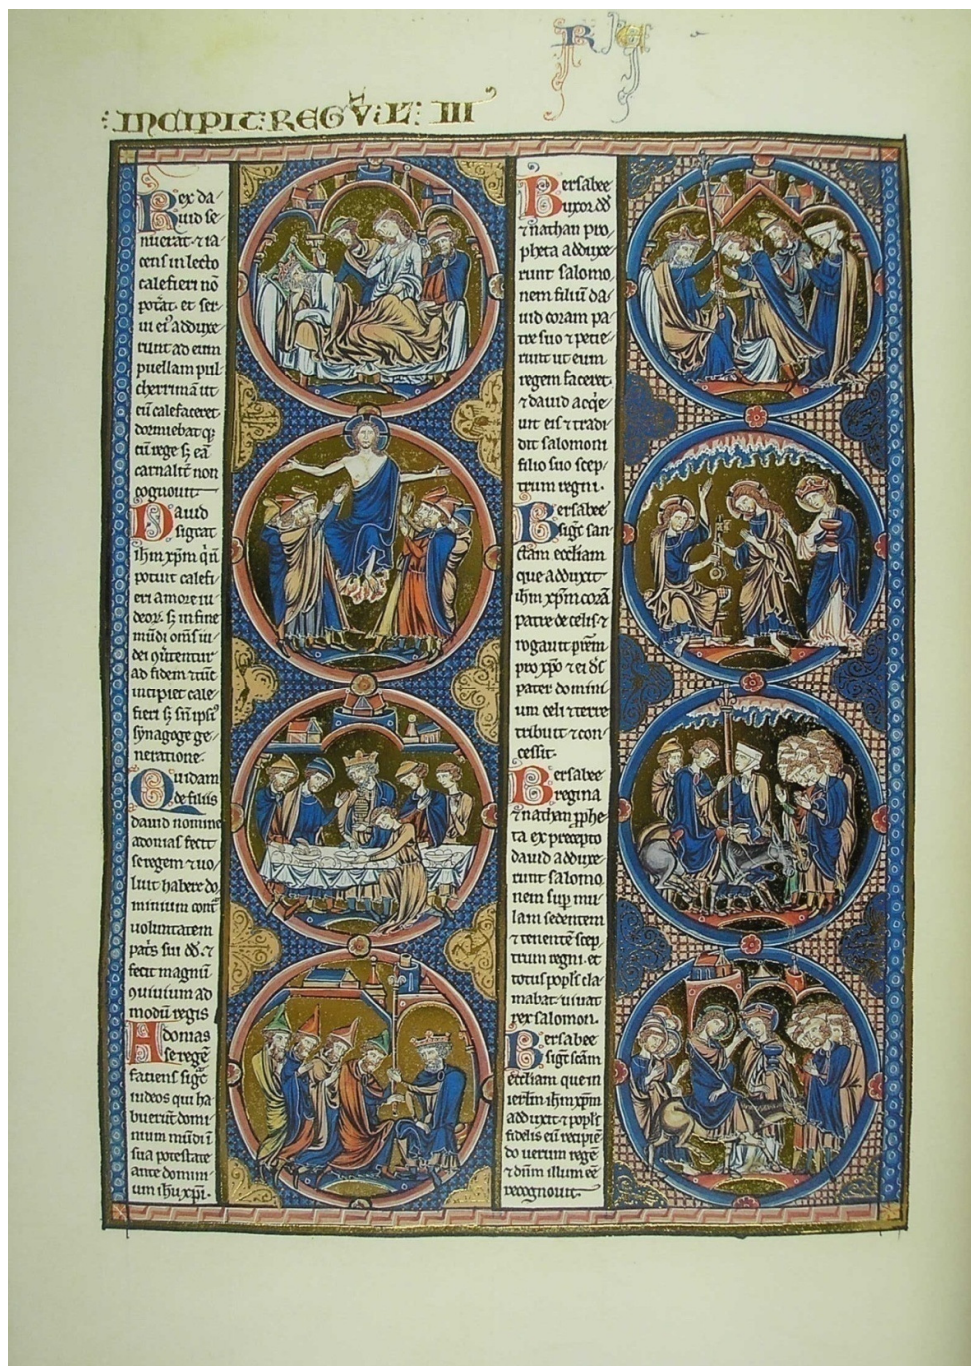 R G
INCIPIT: REGV̄: L: III
Rex da-
uid se-
nuerat· ⁊ ia-
cens in lecto
calefieri nō
potāt· et ser-
ui ei᾽ adduxe-
runt ad eum
puellam pul-
cherrimā ut
eū calefaceret
dormiebat q̢
cū rege sꝫ eā
carnalit̄ non
cognouit
Dauid
sig᷒cat
ihm xp̄m q̇ n̄
potuit calefi-
eri amore iu-
deoꝝ· sꝫ in fine
mūdi om̄s iu-
dei ꝯu̓tentur
ad fidem ⁊ tūc
incipiet cale-
fieri sꝫ sī ipsi᾽
synagoge ge-
neratione·
Quidam
de filiis
dauid nomine
adonias fecit
se regem ⁊ uo-
luit habere do-
minium cont̄
uoluntatem
pat̓s sui dd̄· ⁊
fecit magnū
ꝯuiuium ad
modū regis
Adonias
se regē
faciens sig᷒t
iudeos qui ha-
buerūt domi-
nium mūdi ī
sua potestate
ante domini-
um ihu xp̄i·
Bersabee
uxor dd̄
⁊ nathan pro-
pheta adduxe-
runt salomo-
nem filiū da-
uid coram pa-
tre suo ⁊ petie-
runt ut eum
regem faceret·
⁊ dauid acq̇e-
uit eis ⁊ tradi-
dit salomoni
filio suo scep-
trum regni·
Bersabee
sig᷒t san-
ctam eccl̄iam
que adduxit
ihm xp̄m corā
patre de celis ⁊
rogauit prēm
pro xp̄o ⁊ ei ds̄
pater domini-
um celi ⁊ terre
tribuit ⁊ con-
cessit·
Bersabee
regina
⁊ nathan ꝓphe-
ta ex precepto
dauid adduxe-
runt salomo-
nem suꝑ mu-
lam sedentem
⁊ tenentē scep-
trum regni· et
totus popl̄s cla-
mabat· uiuat
rex salomon·
Bersabee
sig᷒t scām
eccl̄iam que in
ierl̄m ihm xp̄m
adduxit ⁊ popl̄s
fidelis eū recipiē-
do uerum regē
⁊ dn̄m illum eē
recognouit